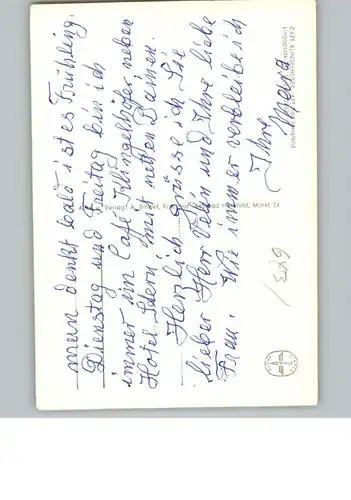 man denkt bald ist es Frühling.
Dienstag und Freitag bin ich
immer im Café Klingelhöfer neben
Hotel Stern mit netten Damen.
Herzlich grüsse ich Sie
lieber Herr und Ihre liebe
Frau. Wie immer verbleibe ich
Ihre
Mara
CAFÉ KLINGELHÖFER, BAD HERSFELD
Linggplatz
Verlag: A. Bad Hersfeld, Markt 24